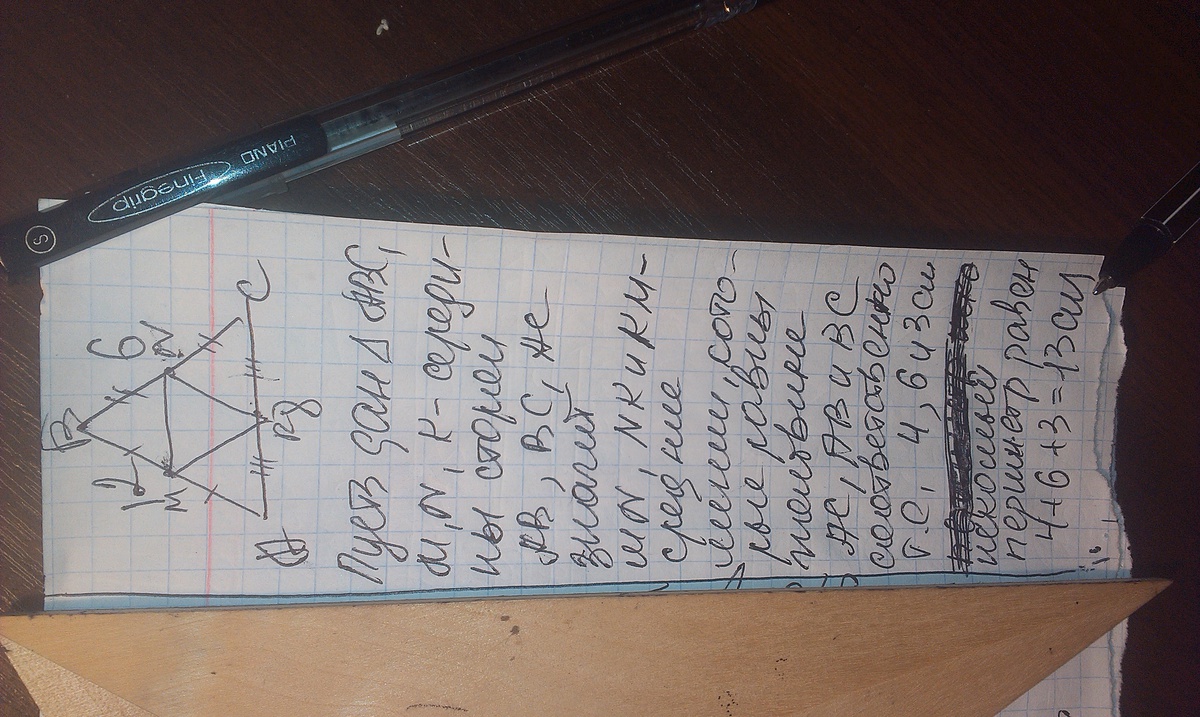 S
Finegrip
PIANO
B
12
6
M
N
A
8
K
C
Пусть дан Δ ABC,
M, N, K - середи-
ны сторон
AB, BC, AC
значит
MN, NK и KM -
средние
линии, кото-
рые равны
половине
AC, AB и BC
соответственно
т.е. 4, 6 и 3 см
искомый
периметр равен
4 + 6 + 3 = 13 см